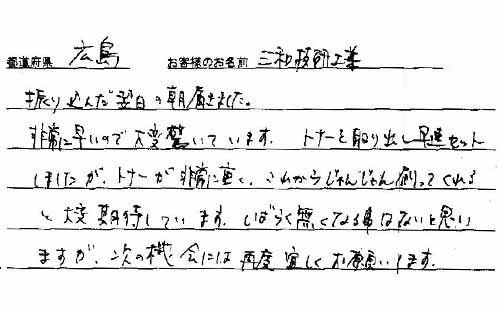 都道府県 広島 お客様のお名前 三和技研工業
振り込んだ翌日の朝届きました。
非常に早いので大変驚いています。トナーを取り出し早速セット
しましたが、トナーが非常に重く、これからじゃんじゃん刷ってくれる
と大変期待しています。しばらく無くなる事はないと思い
ますが、次の機会には再度宜しくお願いします。